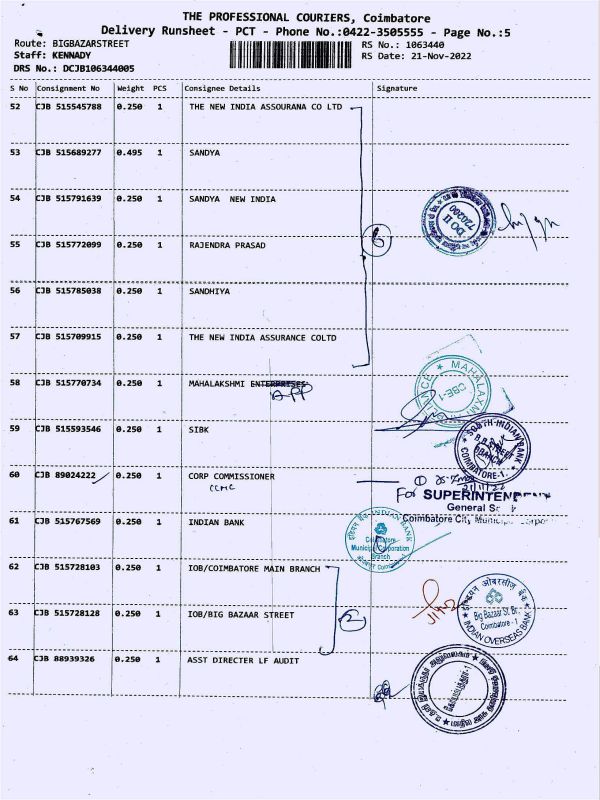 THE PROFESSIONAL COURIERS, Coimbatore
Delivery Runsheet - PCT - Phone No.:0422-3505555 - Page No.:5
Route: BIGBAZARSTREET
RS No.: 1063440
Staff: KENNADY
RS Date: 21-Nov-2022
DRS No.: DCJB106344005
S No Consignment No Weight PCS Consignee Details Signature
52 CJB 515545788 0.250 1 THE NEW INDIA ASSOURANA CO LTD
53 CJB 515689277 0.495 1 SANDYA
54 CJB 515791639 0.250 1 SANDYA NEW INDIA
DO II
720200
55 CJB 515772099 0.250 1 RAJENDRA PRASAD
6
56 CJB 515785038 0.250 1 SANDHIYA
57 CJB 515709915 0.250 1 THE NEW INDIA ASSURANCE COLTD
58 CJB 515770734 0.250 1 MAHALAKSHMI ENTERPRISES
APP
MAHALAXMI
CBE-1
59 CJB 515593546 0.250 1 SIBK
SOUTH INDIAN BANK
B.B. STREET
BRANCH
COIMBATORE-1.
60 CJB 89024222 0.250 1 CORP COMMISSIONER
CCMC
21/11/22
For SUPERINTENDENT
General
Coimbatore City
61 CJB 515767569 0.250 1 INDIAN BANK
इंडियन बैंक INDIAN BANK
Coimbatore
Municipal Corporation
Branch
62 CJB 515728103 0.250 1 IOB/COIMBATORE MAIN BRANCH
63 CJB 515728128 0.250 1 IOB/BIG BAZAAR STREET
2
इण्डियन ओवरसीज़ बैंक
Big Bazaar St. Br.,
Coimbatore - 1
INDIAN OVERSEAS BANK
64 CJB 88939326 0.250 1 ASST DIRECTER LF AUDIT